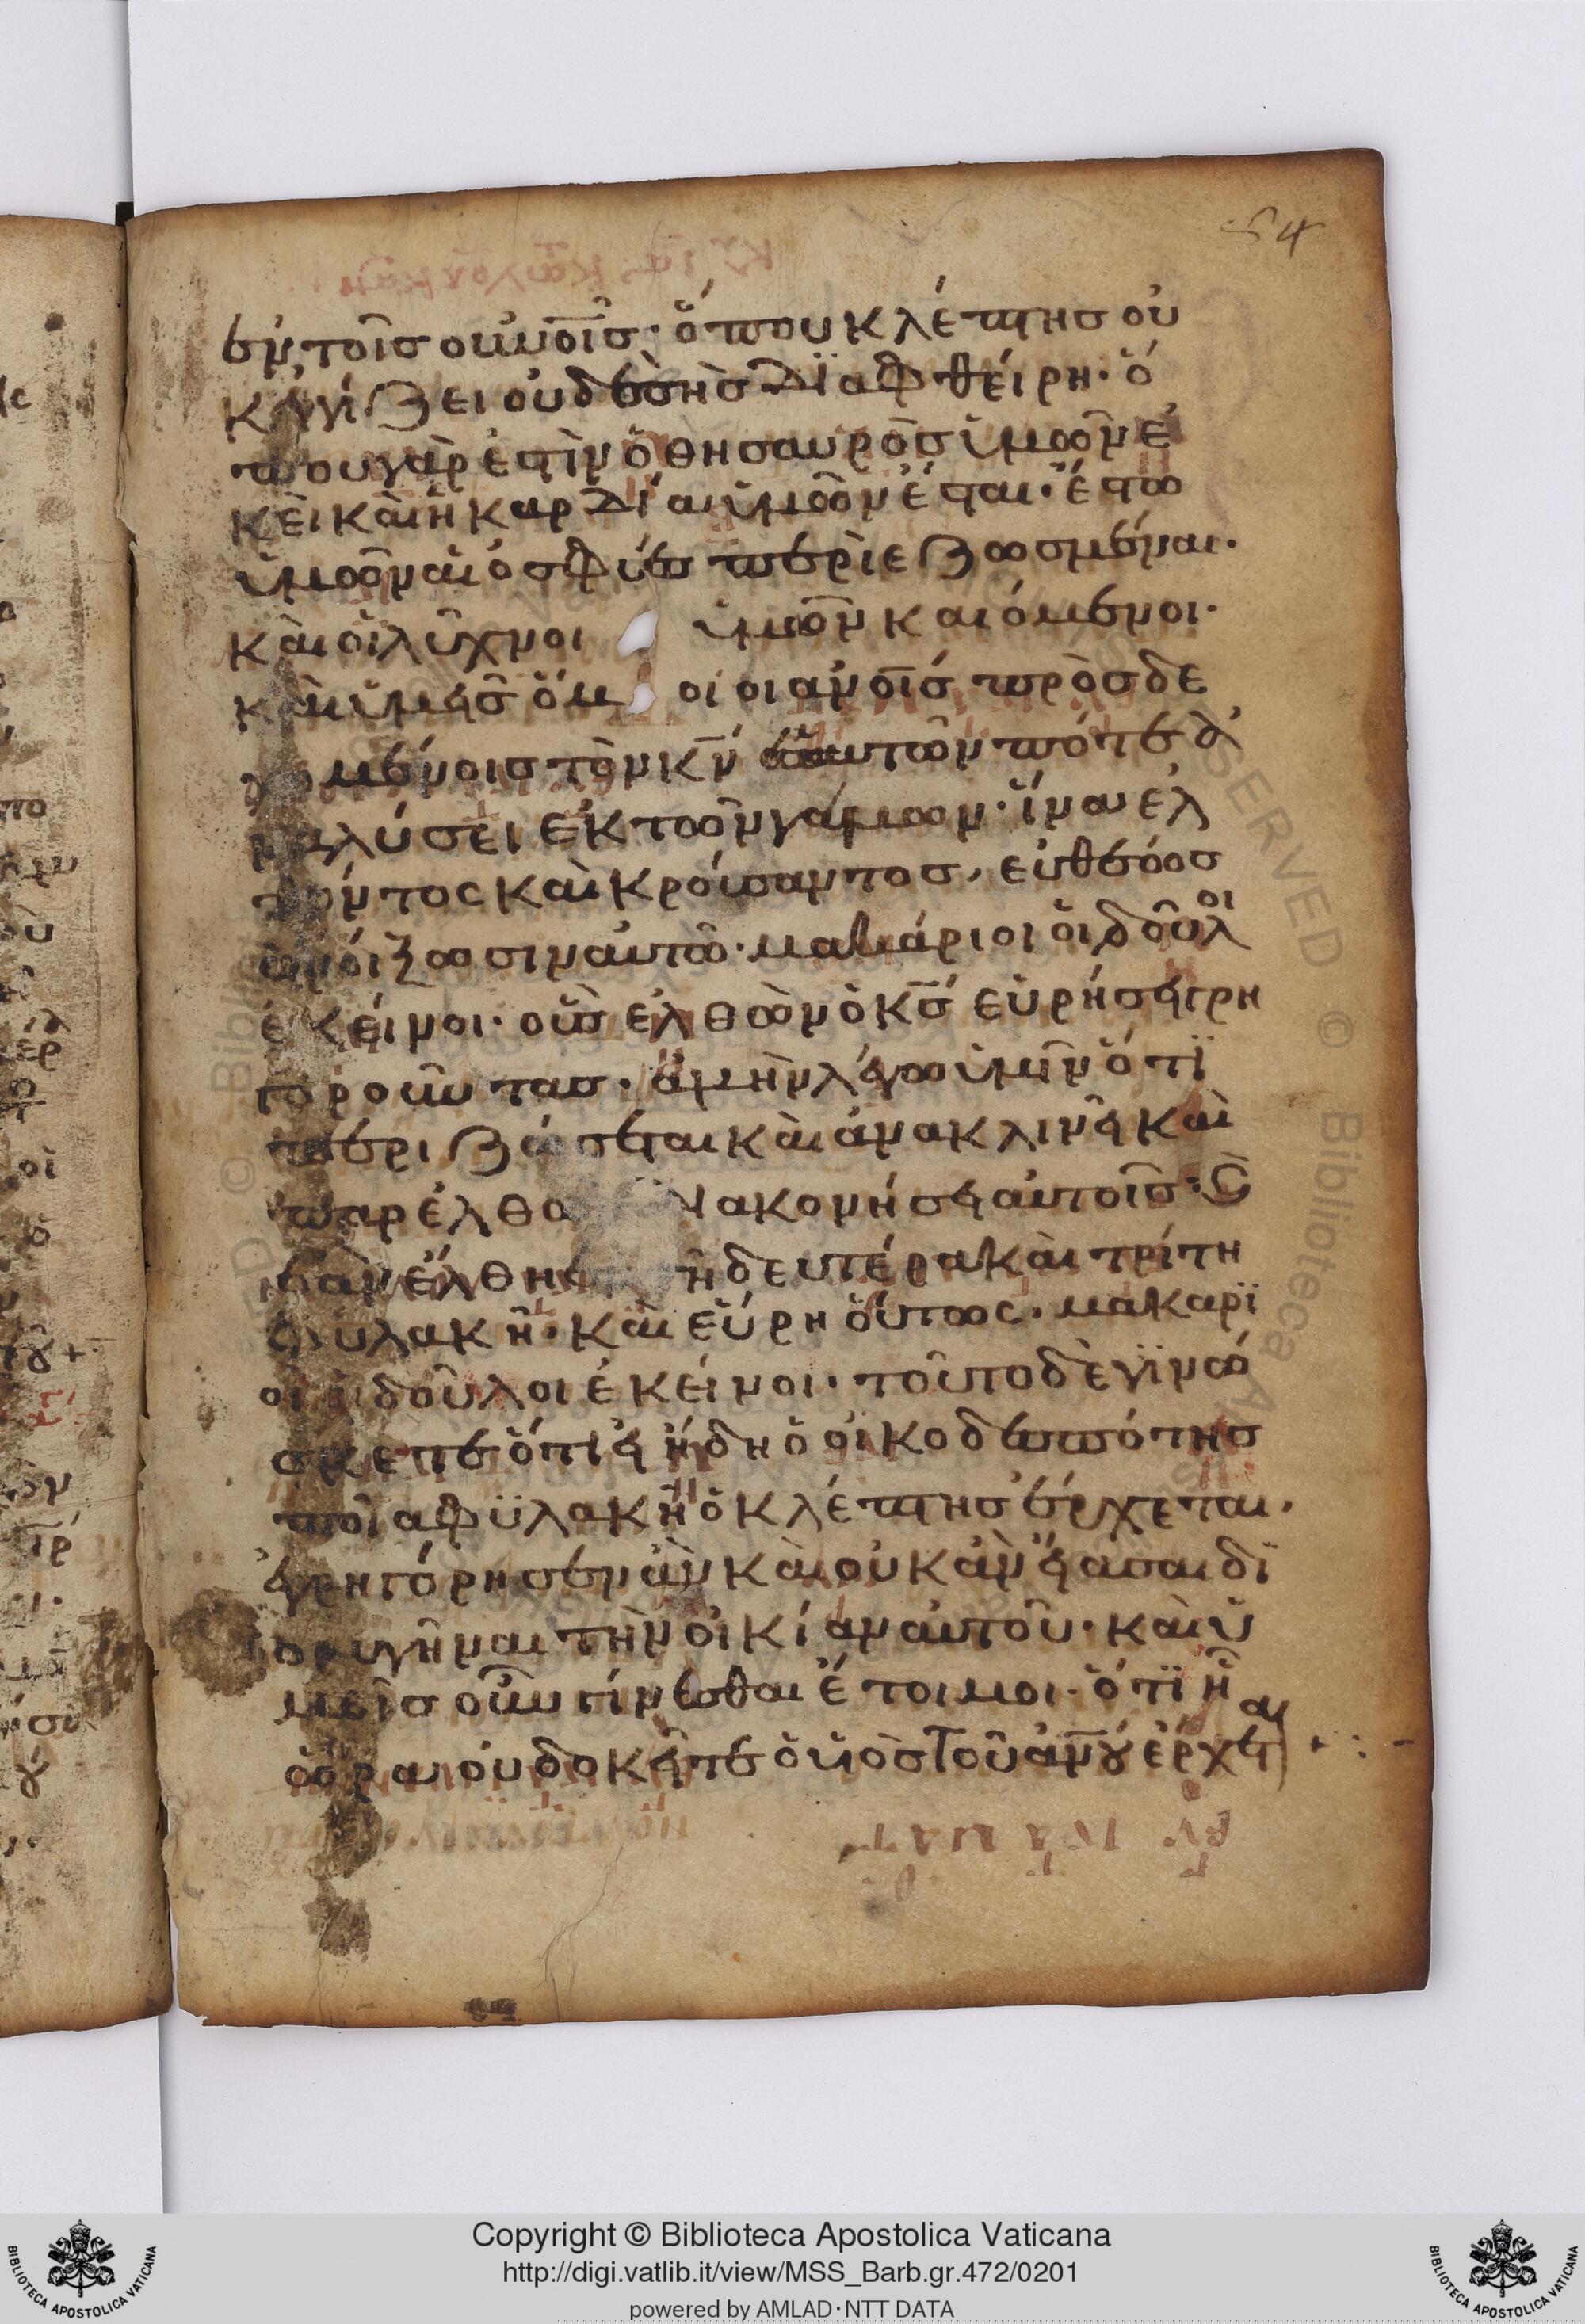 54
ἐν τοῖς οὐνοῖς· ὅπου κλέπτης οὐ
κ ἐγγίζει οὐδὲ σὴς διαφθείρη· ὅ
που γὰρ ἐστὶν ὁ θησαυρὸς ὑμῶν ἐ
κεῖ καὶ ἡ καρδία ὑμῶν ἔσται· ἔστω
ὑμῶν αἱ ὀσφύες περιεζωσμέναι·
καὶ οἱ λύχνοι ὑμῶν καιόμενοι·
καὶ ὑμεῖς ὅμοιοι ανοῖς προσδε
χομένοις τὸν κν ἑαυτῶν πότε ἀ
ναλύσει ἐκ τῶν γάμων· ἵνα ελ
θόντος καὶ κρούσαντος, εὐθέως
ἀνοίξωσιν αὐτῶ· μακάριοι οἱ δοῦλοι
ἐκεῖνοι· οὓς ἐλθὼν ὁ κς εὑρήσει γρη
γοροῦντας· ἀμὴν λέγω ὑμῖν ὅτι
περιζώσεται καὶ ἀνακλινεῖ καὶ
παρελθὼ διακονήσει αὐτοῖς· καὶ
ἐὰν ἔλθη ἐν τῆ δευτέρα καὶ τρίτη
φύλακῆ· καὶ εὕρη οὕτως· μακάρι
οι οἱ δοῦλοι ἐκεῖνοι· τοῦτο δὲ γινώ
σκετε ὅτι εἰ ἤδη ὁ οἰκοδεσπότης
ποῖα φϋλακῆ ὁ κλέπτης ἔρχεται,
ἐγρηγόρησεν ἂν καὶ οὐκ ἂν εἴασαι δι
ορυγῆναι τὴν οἰκίαν αὐτοῦ· καὶ ὑ
μεῖς οὖν γίνεσθαι ἕτοιμοι· ὅτι ἧ
ὥρα οὐ δοκεῖτε ὁ υἱὸς τοῦ ανου ἔρχεται
Copyright © Biblioteca Apostolica Vaticana
http://digi.vatlib.it/view/MSS_Barb.gr.472/0201
powered by AMLAD·NTT DATA
BIBLIOTECA APOSTOLICA VATICANA
BIBLIOTECA APOSTOLICA VATICANA